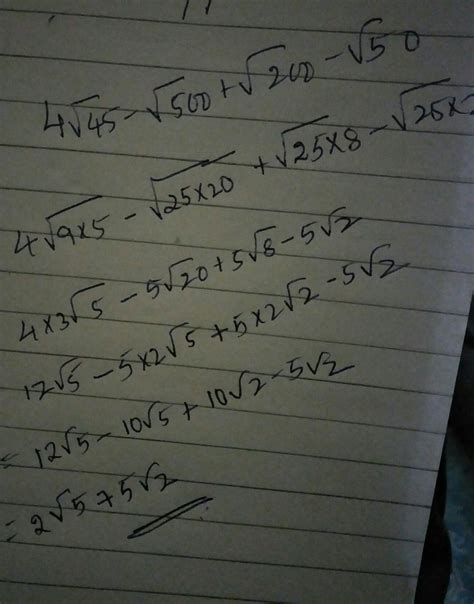 4√45 - √500 + √200 - √50
4√9×5 - √25×20 + √25×8 - √25×2
4×3√5 - 5√20 + 5√8 - 5√2
12√5 - 5×2√5 + 5×2√2 - 5√2
= 12√5 - 10√5 + 10√2 - 5√2
= 2√5 + 5√2